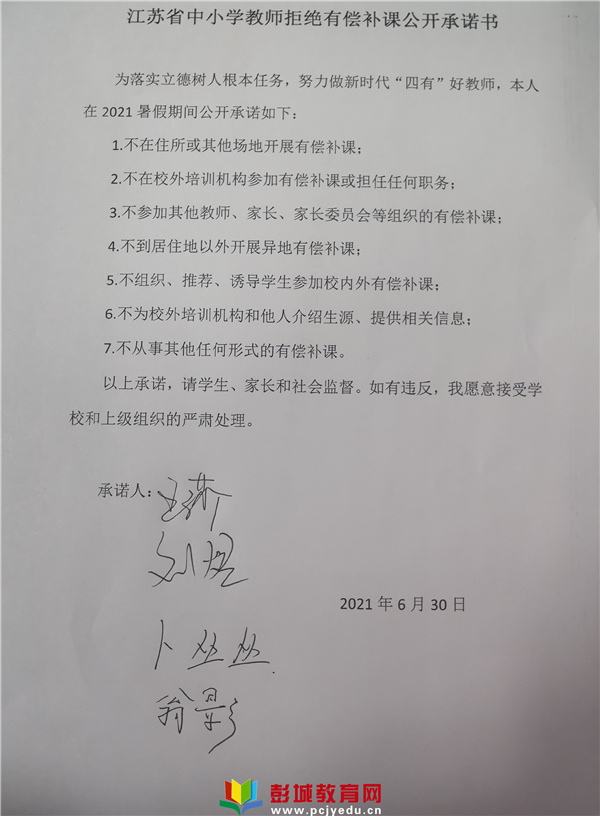 江苏省中小学教师拒绝有偿补课公开承诺书
为落实立德树人根本任务，努力做新时代“四有”好教师，本人
在 2021 暑假期间公开承诺如下：
1.不在住所或其他场地开展有偿补课；
2.不在校外培训机构参加有偿补课或担任任何职务；
3.不参加其他教师、家长、家长委员会等组织的有偿补课；
4.不到居住地以外开展异地有偿补课；
5.不组织、推荐、诱导学生参加校内外有偿补课；
6.不为校外培训机构和他人介绍生源、提供相关信息；
7.不从事其他任何形式的有偿补课。
以上承诺，请学生、家长和社会监督。如有违反，我愿意接受学
校和上级组织的严肃处理。
承诺人：
刘
2021 年 6 月 30 日
卜丛丛
翁影
彭城教育网
www.pcjyedu.cn